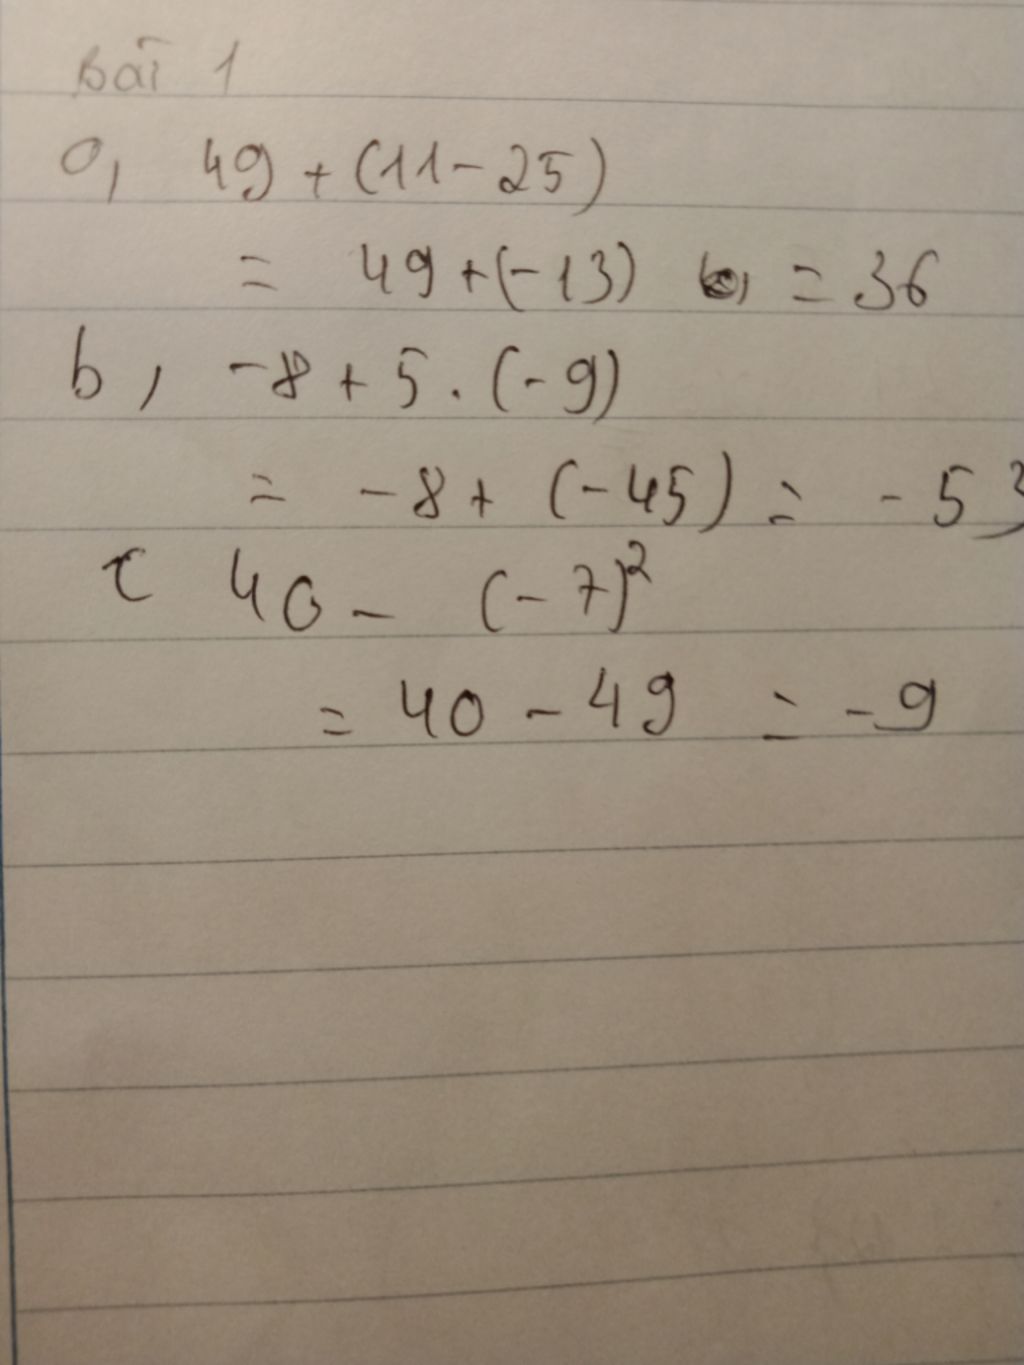 Bài 1
a, 49 + (11 - 25)
= 49 + (-13) = 36
b, -8 + 5 . (-9)
= -8 + (-45) = -53
c 40 - (-7)²
= 40 - 49 = -9